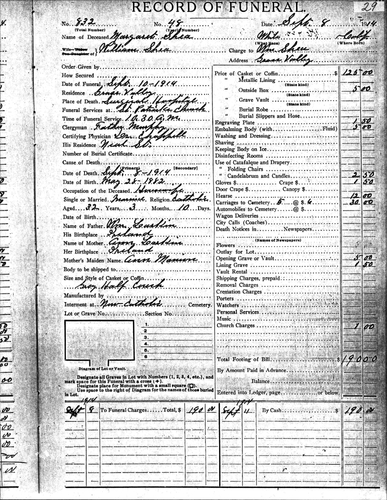 RECORD OF FUNERAL.
29
No. 832 No. 48 Date Sept. 8 1914
Name of Deceased Margaret Shea White Calif.
William Shea Charge to Wm. Shea
Address Grass Valley
Order Given by
How Secured
Date of Funeral Sept. 10-1914
Residence Grass Valley
Place of Death
Funeral Services at St. Patrick's Church
Time of Funeral Service 10.30 A.M.
Clergyman Father Murphy
Certifying Physician Dr.
His Residence
Number of Burial Certificate
Cause of Death
(Secondary)
Date of Death Sept. 8-1914
Date of Birth May 28-1882
Occupation of the Deceased Housewife
Single or Married Married Religion Catholic
Aged 32 Years, 3 Months, 10 Days.
Date of Birth
Name of Father
His Birthplace
Name of Mother
Her Birthplace Ireland
Mother's Maiden Name
Body to be shipped to
Size and Style of Casket or Coffin
Grey Half Couch
Manufactured by
Interment at New Catholic Cemetery.
Lot or Grave No. Section No.
1
2
3
4
5
6
Diagram of Lot or Vault.
Designate all Graves in Lot with Numbers (1, 2, 3, 4, etc.), and
mark space for this Funeral with a cross (+).
Designate place for Monument with a small square
Use space to right of Diagram for the names of those buried
in Lot.
Price of Casket or Coffin $ 125 00
Metallic Lining
(State kind)
Outside Box 5 00
(State kind)
Grave Vault
(State kind)
Burial Robe
(State kind)
Burial Slippers and Hose
Engraving Plate 1 50
Embalming Body (with Fluid) 5 00
Washing and Dressing
Shaving
Keeping Body on Ice
Disinfecting Rooms
Use of Catafalque and Drapery
" Folding Chairs
" Candelabrum and Candles 2 50
Gloves $ Crape $ 1 50
Door Crape $ Canopy $
Hearse 12 00
Carriages to Cemetery 5 @ $ 6 30 00
Automobiles to Cemetery @ $
Wagon Deliveries
City Calls (Coaches)
Death Notices in Newspapers
(Names of Newspapers)
Flowers
Outlay for Lot
Opening Grave or Vault 5 00
Lining Grave 1 50
Vault Rental
Shipping Charges, prepaid
Removal Charges
Cremation Charges
Porters
Watchers
Personal Services
Music
Church Charges 1 00
Total Footing of Bill $ 190 00
By Amount Paid in Advance
Balance
Entered into Ledger, page or below.
1914 1914
Sept 8 To Funeral Charges Total, $ 190 00 Sept 11 By Cash $ 190 00